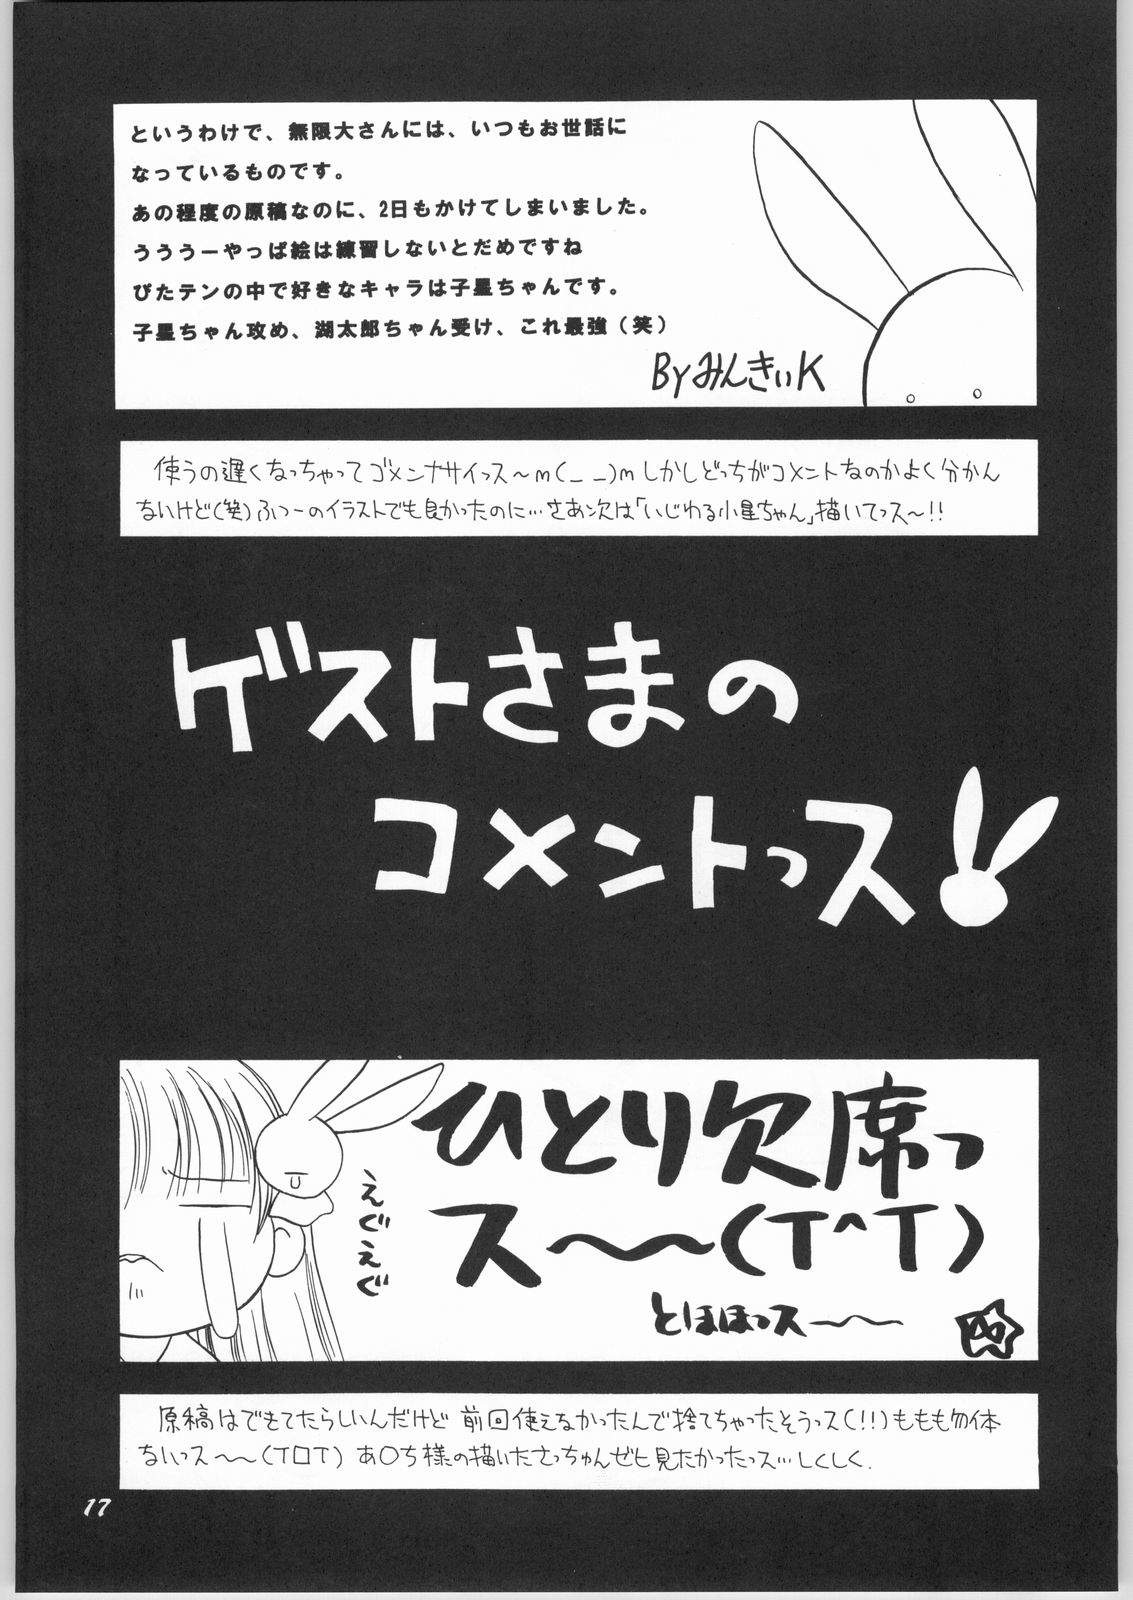 というわけで、無限大さんには、いつもお世話に
なっているものです。
あの程度の原稿なのに、2日もかけてしまいました。
うううーやっぱ絵は練習しないとだめですね
ぴたテンの中で好きなキャラは子星ちゃんです。
子星ちゃん攻め、湖太郎ちゃん受け、これ最強（笑）
ByみんきぃK
使うの遅くなっちゃってゴメンナサイっス〜m(_ _)mしかしどっちがコメントなのかよく分かん
ないけど(笑)ふつーのイラストでも良かったのに…さあ次は「いじわる小星ちゃん」描いてっス〜!!
ゲストさまの
コメントっス
ひとり欠席っ
ス〜〜(T^T)
えぐえぐ
とほほっス〜〜
原稿はできてたらしいんだけど前回使えなかったんで捨てちゃったそうっス(!!)ももも勿体
ないっス〜〜(T□T)あ〇ち様の描いたさっちゃんぜヒ見たかったっス…しくしく.
17